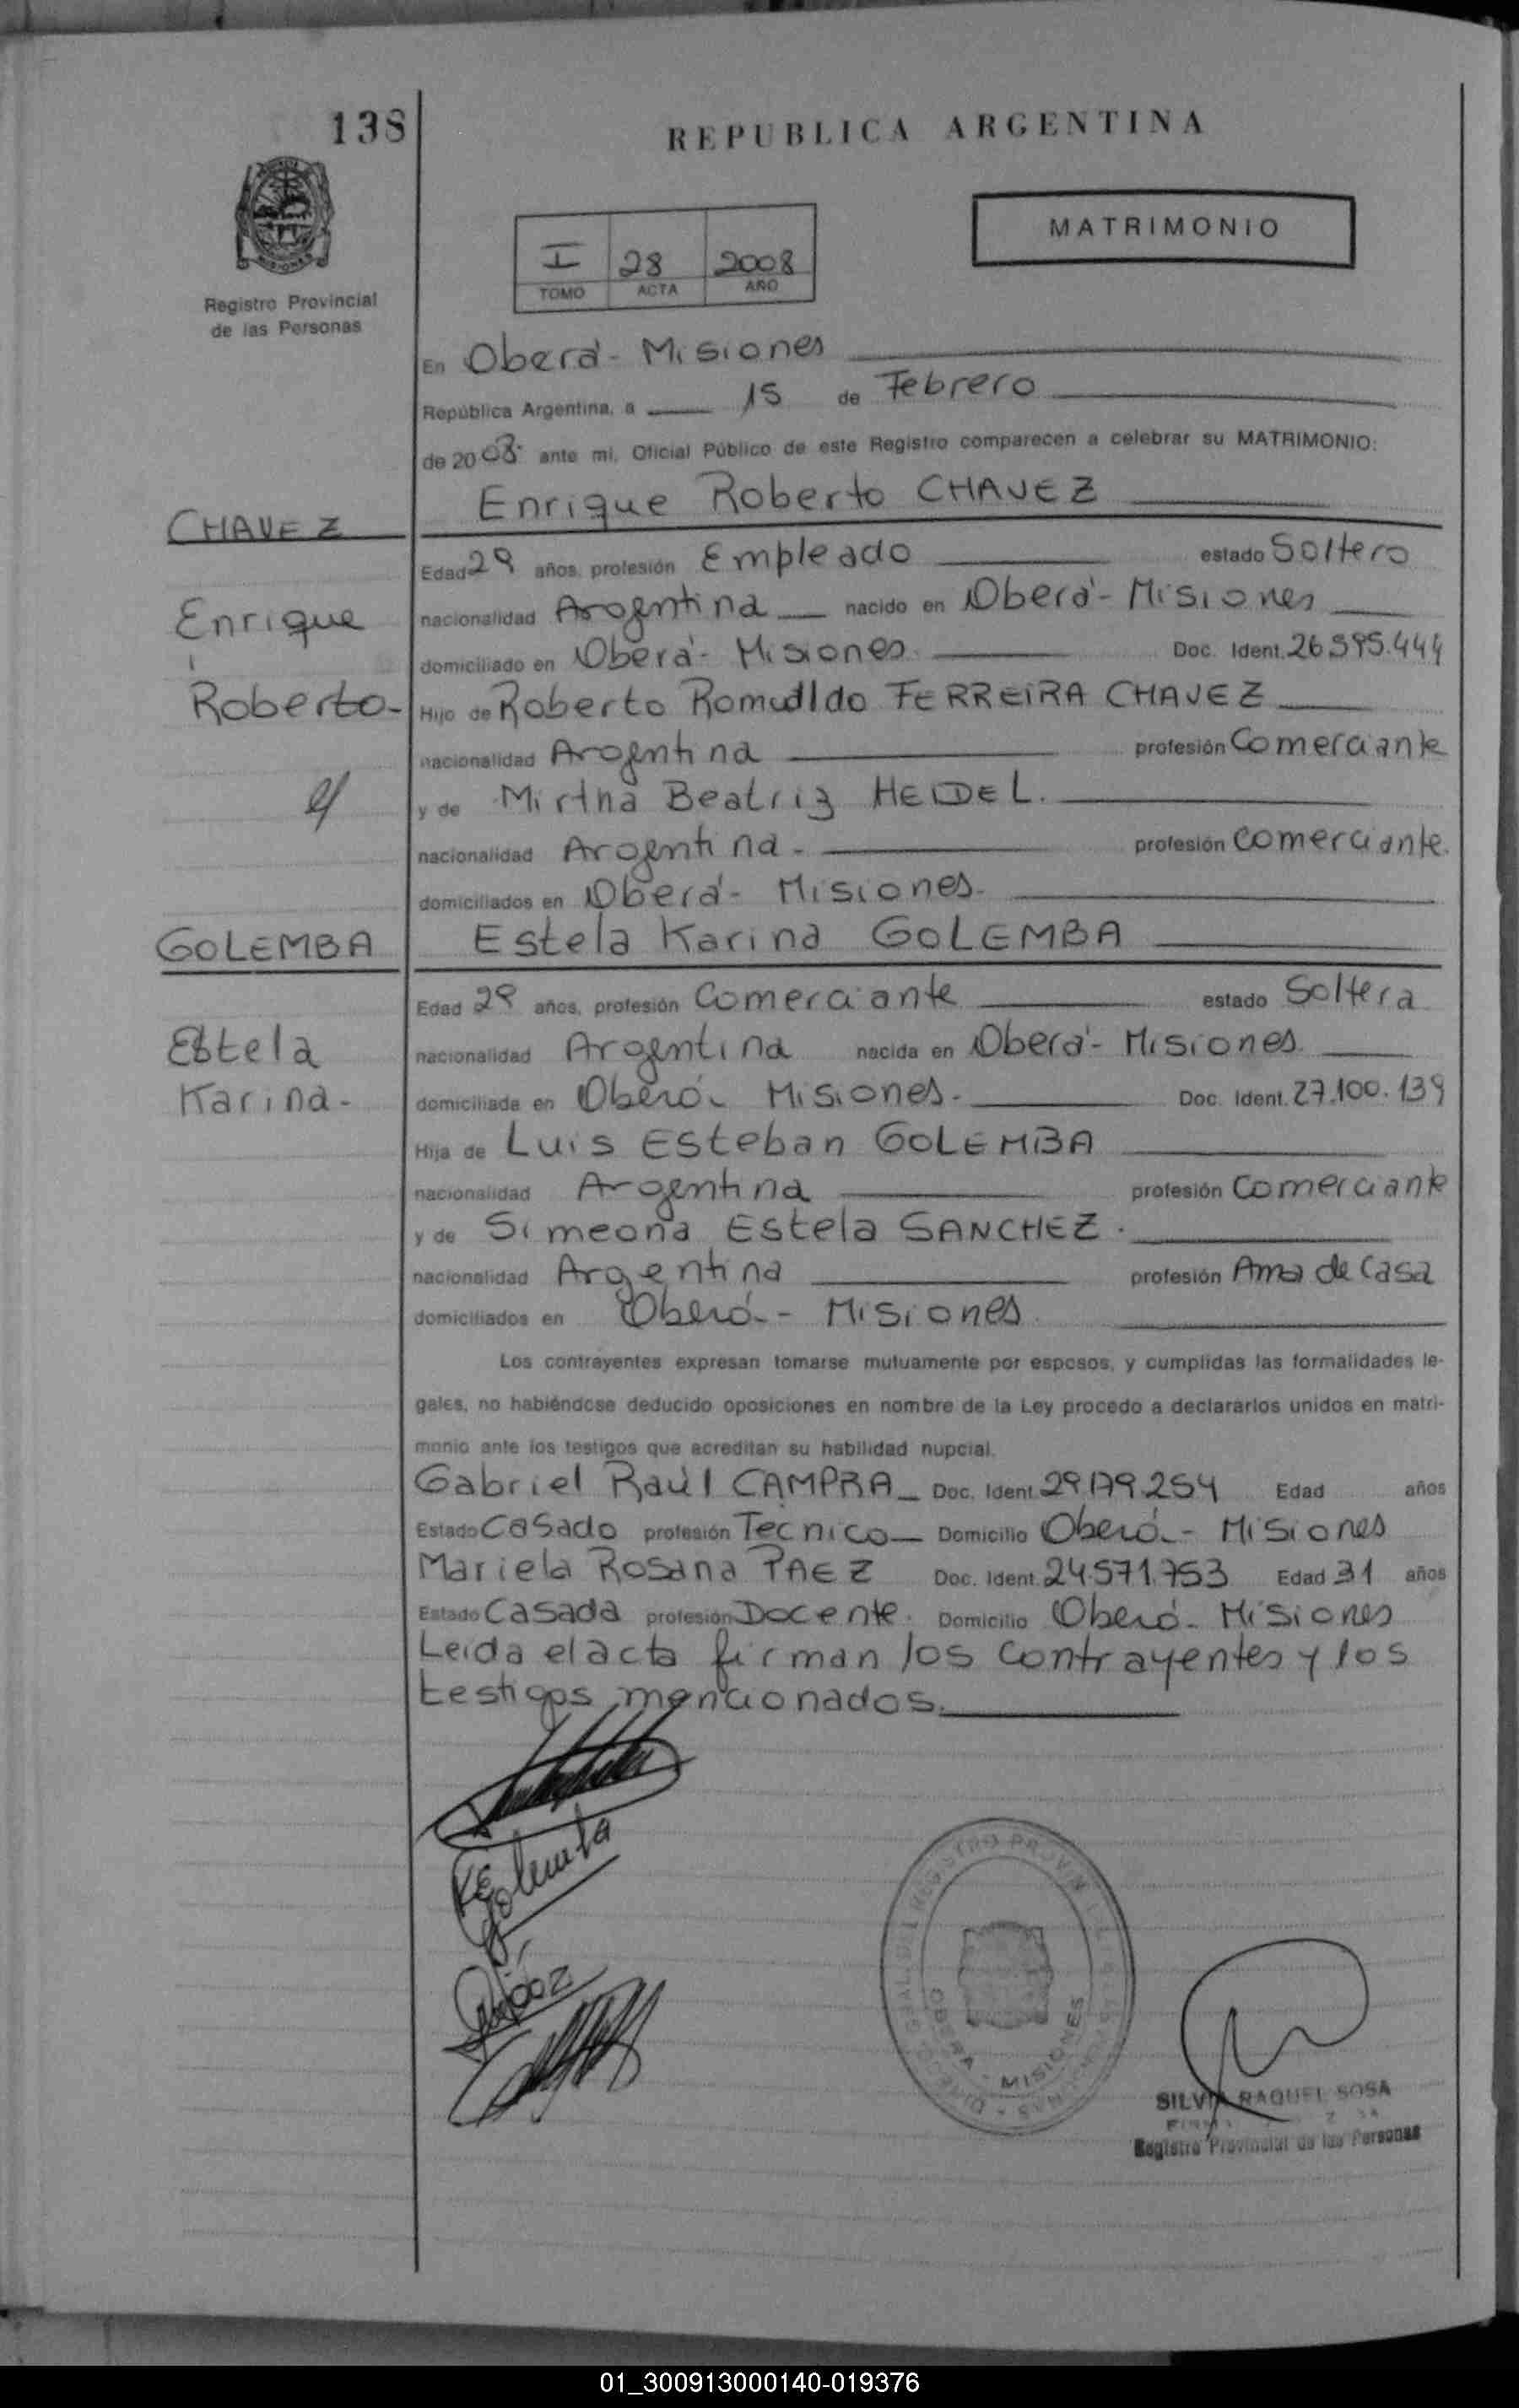 138
REPUBLICA ARGENTINA
MATRIMONIO
I 28 2008
TOMO ACTA AÑO
Registro Provincial
de las Personas
En Oberá - Misiones
República Argentina, a 15 de Febrero
de 2008 ante mi, Oficial Público de este Registro comparecen a celebrar su MATRIMONIO:
Enrique Roberto CHAVEZ
CHAVEZ
Edad 29 años, profesión Empleado estado Soltero
Enrique
nacionalidad Argentina nacido en Oberá - Misiones
domiciliado en Oberá - Misiones. Doc. Ident. 26.595.444
Roberto-
Hijo de Roberto Romualdo FERREIRA CHAVEZ
nacionalidad Argentina profesión Comerciante
y de Mirtha Beatriz HEIDEL.
nacionalidad Argentina - profesión comerciante.
domiciliados en Oberá - Misiones.
GOLEMBA
Estela Karina GOLEMBA
Edad 29 años, profesión Comerciante estado Soltera
Estela
nacionalidad Argentina nacida en Oberá - Misiones.
Karina-
domiciliada en Oberá - Misiones. Doc. Ident. 27.100.139
Hija de Luis Esteban GOLEMBA
nacionalidad Argentina profesión Comerciante
y de Simeona Estela SANCHEZ.
nacionalidad Argentina profesión Ama de Casa
domiciliados en Oberá - Misiones.
Los contrayentes expresan tomarse mutuamente por esposos, y cumplidas las formalidades le-
gales, no habiéndose deducido oposiciones en nombre de la Ley procedo a declararlos unidos en matri-
monio ante los testigos que acreditan su habilidad nupcial.
Gabriel Raúl CAMPRA Doc. Ident. 29.179.254 Edad años
Estado Casado profesión Técnico Domicilio Oberá - Misiones
Mariela Rosana PAEZ Doc. Ident. 24.571.753 Edad 31 años
Estado Casada profesión Docente. Domicilio Oberá - Misiones
Leida el acta firman los contrayentes y los
testigos mencionados.
KE Golemba
OBERA - MISIONES
SILVIA RAQUEL SOSA
Registro Provincial de las Personas
01_300913000140-019376